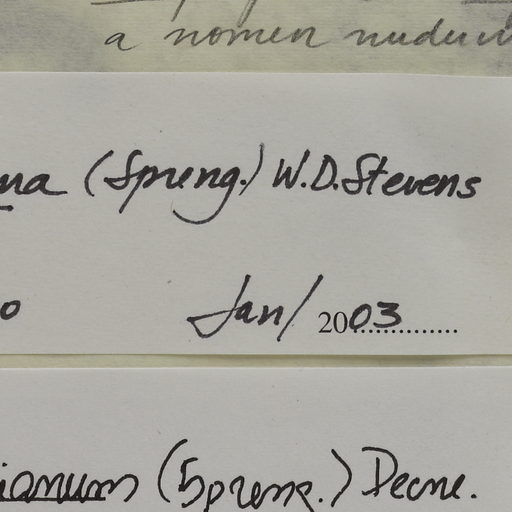 a nomen nudum
na (Spreng.) W.D. Stevens
o Jan/ 2003
ianum (Spreng.) Decne.